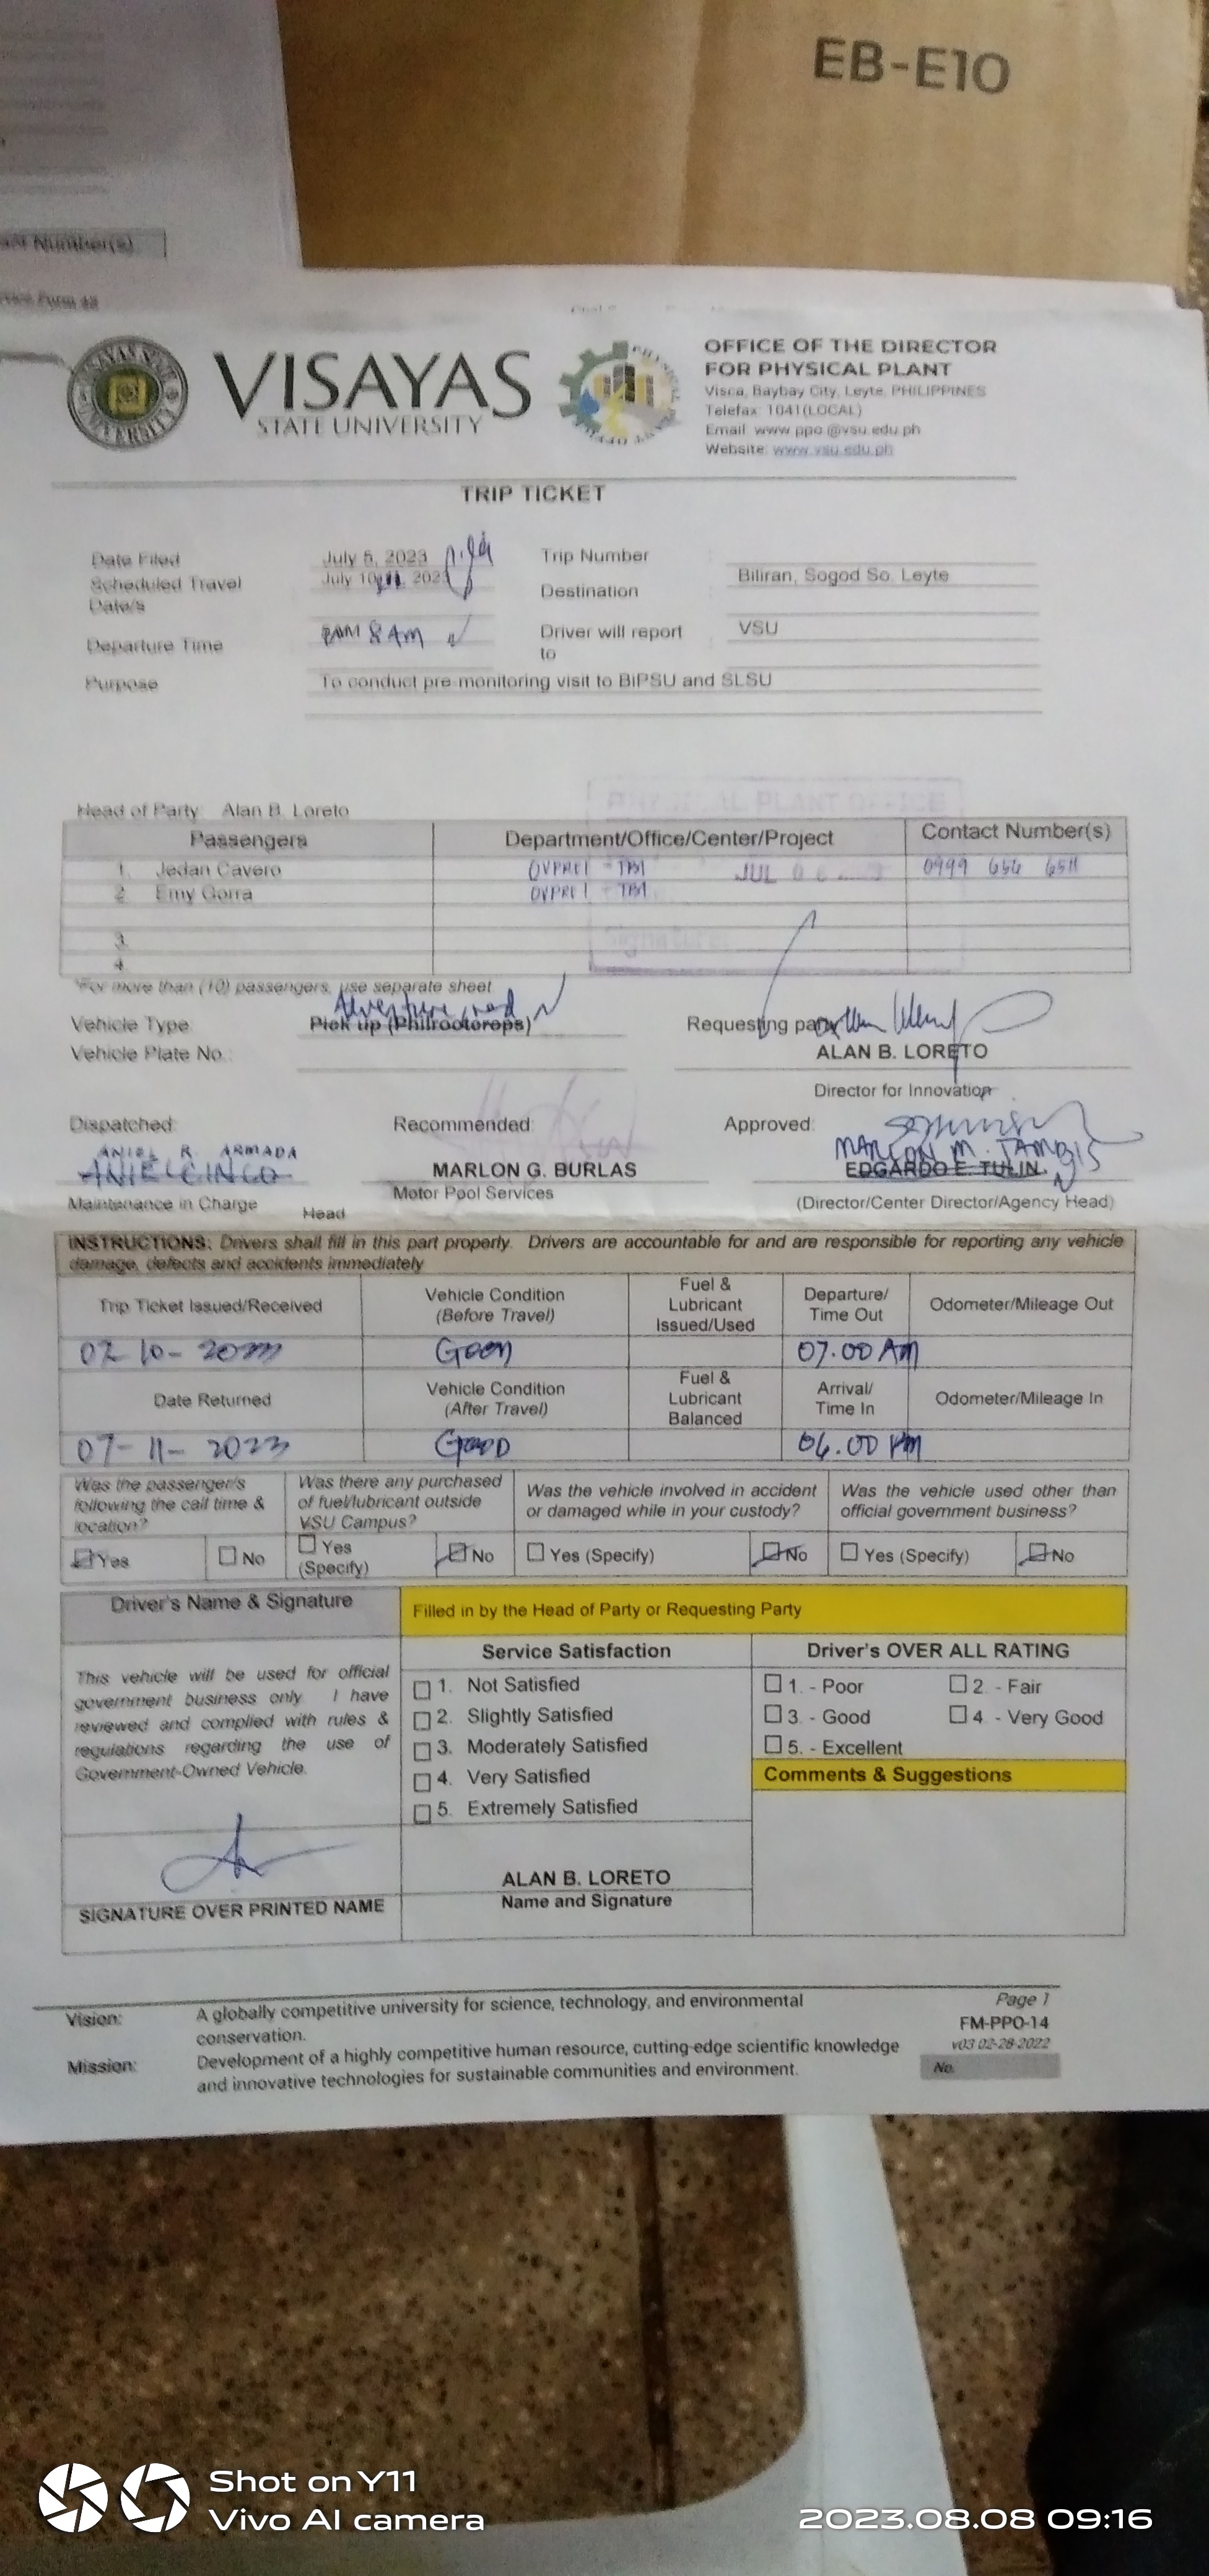 EB-E10
VISAYAS
STATE UNIVERSITY
OFFICE OF THE DIRECTOR
FOR PHYSICAL PLANT
Visca, Baybay City, Leyte, PHILIPPINES
Telefax: 1041(LOCAL)
Email: www.ppo@vsu.edu.ph
Website: www.vsu.edu.ph
TRIP TICKET
Date Filed July 5, 2023 Trip Number
Scheduled Travel Date/s July 10 2023 Destination Biliran, Sogod So. Leyte
Departure Time 8AM Driver will report to VSU
Purpose To conduct pre-monitoring visit to BiPSU and SLSU
Head of Party: Alan B. Loreto
Passengers Department/Office/Center/Project Contact Number(s)
1. Jedan Cavero OVPREI - TBI 0999 656 6511
2 Emy Gorra OVPREI - TBI
3.
4.
PHYSICAL PLANT OFFICE
JUL
Signature:
*For more than (10) passengers, use separate sheet
Adventure red
Vehicle Type: Pick up (Philrootcrops) Requesting party
Vehicle Plate No.: ALAN B. LORETO
Director for Innovation
Dispatched: Recommended: Approved:
ANIEL R. ARMADA MARLON M. TAMBIS
ANIEL CINCO MARLON G. BURLAS EDGARDO E. TULIN
Maintenance in Charge Head Motor Pool Services (Director/Center Director/Agency Head)
INSTRUCTIONS: Drivers shall fill in this part properly. Drivers are accountable for and are responsible for reporting any vehicle
damage, defects and accidents immediately
Trip Ticket Issued/Received Vehicle Condition (Before Travel) Fuel & Lubricant Issued/Used Departure/ Time Out Odometer/Mileage Out
07-10-2023 Good 07.00 AM
Date Returned Vehicle Condition (After Travel) Fuel & Lubricant Balanced Arrival/ Time In Odometer/Mileage In
07-11-2023 Good 06.00 PM
Was the passenger/s following the call time & location? Was there any purchased of fuel/lubricant outside VSU Campus? Was the vehicle involved in accident or damaged while in your custody? Was the vehicle used other than official government business?
Yes No Yes (Specify) No Yes (Specify) No Yes (Specify) No
Driver's Name & Signature Filled in by the Head of Party or Requesting Party
Service Satisfaction Driver's OVER ALL RATING
This vehicle will be used for official
government business only. I have
reviewed and complied with rules &
regulations regarding the use of
Government-Owned Vehicle.
1. Not Satisfied
2. Slightly Satisfied
3. Moderately Satisfied
4. Very Satisfied
5. Extremely Satisfied
1. - Poor 2. - Fair
3. - Good 4. - Very Good
5. - Excellent
Comments & Suggestions
ALAN B. LORETO
SIGNATURE OVER PRINTED NAME Name and Signature
Vision: A globally competitive university for science, technology, and environmental
conservation.
Mission: Development of a highly competitive human resource, cutting-edge scientific knowledge
and innovative technologies for sustainable communities and environment.
Page 1
FM-PPO-14
v03 02-28-2022
No.
Shot on Y11
Vivo AI camera
2023.08.08 09:16